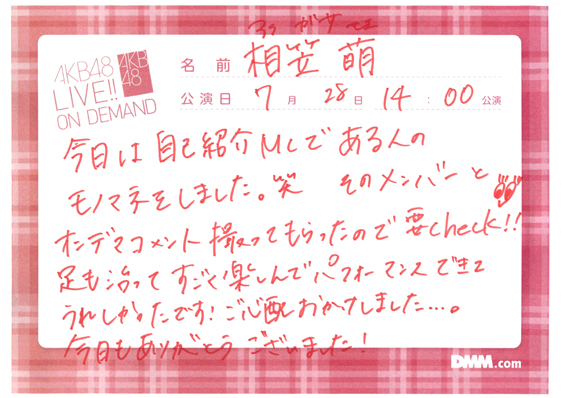 AKB48
LIVE!!
ON DEMAND
AKB
48
あい がさ もえ
名前 相笠 萌
公演日 7月 28日 14:00公演
今日は自己紹介MCである人の
モノマネをしました。笑 そのメンバーと
オンデマコメント撮ってもらったので要check!!
足も治ってすごく楽しんでパフォーマンスできて
うれしかったです!ご心配おかけしました…。
今日もありがとうございました!
DMM.com